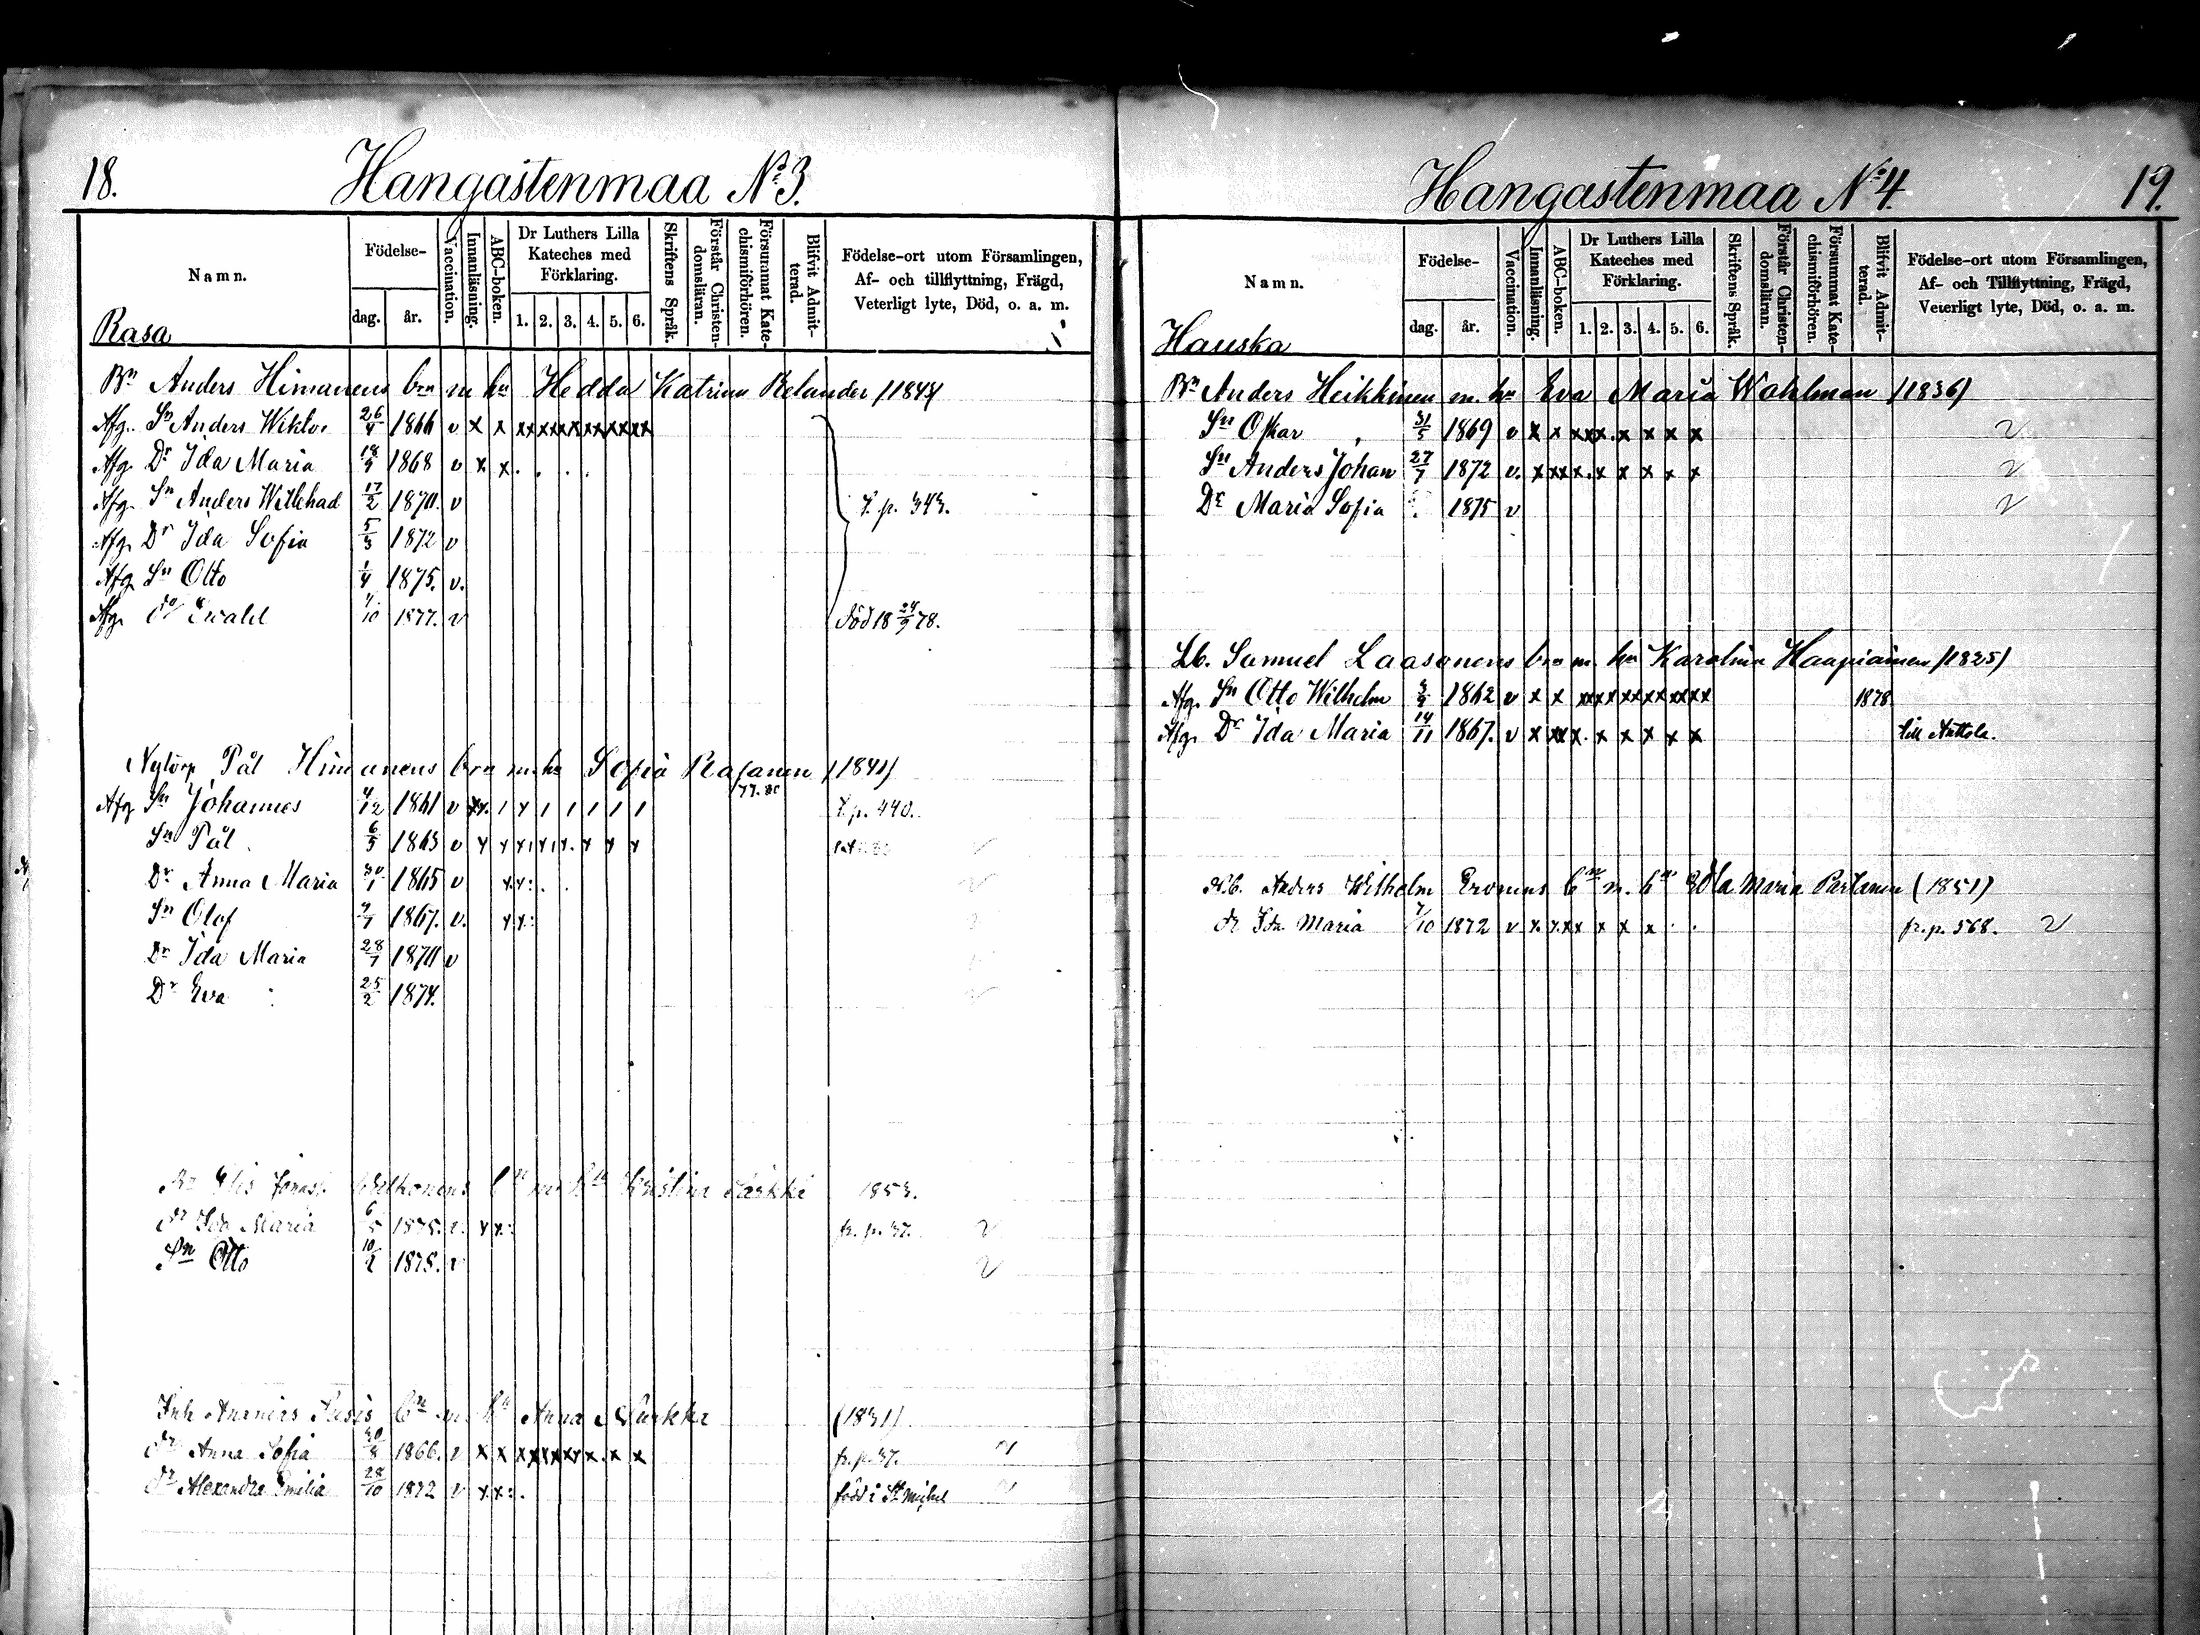 18.
Hangastenmaa No 3.
Namn.
Födelse-
dag.
år.
Vaccination.
Innanläsning.
ABC-boken.
Dr Luthers Lilla Kateches med Förklaring.
1. 2. 3. 4. 5. 6.
Skriftens Språk.
Förstår Christendomsläran.
Försummat Katechismiförhören.
Blifvit Admitterad.
Födelse-ort utom Församlingen,
Af- och tillflyttning, Frägd,
Veterligt lyte, Död, o. a. m.
Rasa
Bn Anders Himanens bra m hu Hedda Katrina Relander /1844/
Afg. Sn Anders Wiktor 26/4 1866 v x x xxxxxxxxxxxx
Afg. Dr Ida Maria 18/3 1868 v x x . . . .
Afg. Sn Anders Willehad 17/2 1870. v T. p. 343.
Afg. Dr Ida Sofia 5/3 1872 v
Afg Sn Otto 1/4 1875. v.
Afg. do Ewald 1/10 1877. v död 18 24/9 78.
Nytorp Pål Himanens bra m. hu Sofia Rasanen /1841/
Afg Sn Johannes 4/12 1861 v xx. / y / / / / / 77. 80 T. p. 440.
Sn Pål 6/5 1863 v
Dr Anna Maria 30/1 1865 v
Sn Olof 1867. v.
Dr Ida Maria 28/1 1870 v
Dr Eva 25/2 1874.
Kristina Särkkä 1853.
dr Ida Maria 6/5 1873. v. x x: fr. p. 37. v
Sn Otto 10/2 1875. v v
Inh Ananias Anna Särkkä (1831)
dr Anna Sofia 30/8 1866. v x x x x x x x x x. x x fr. p. 37.
dr Alexandra Emilia 28/10 1872 v x x: . född i St Michel
Hangastenmaa No 4.
19.
Namn.
Födelse-
dag.
år.
Vaccination.
Innanläsning.
ABC-boken.
Dr Luthers Lilla Kateches med Förklaring.
1. 2. 3. 4. 5. 6.
Skriftens Språk.
Förstår Christendomsläran.
Försummat Katechismiförhören.
Blifvit Admitterad.
Födelse-ort utom Församlingen,
Af- och Tillflyttning, Frägd,
Veterligt lyte, Död, o. a. m.
Hauska
Bn Anders Heikkinen m. hu Eva Maria Wahlman /1836/
Sn Oskar 31/5 1869 v x x xxx. x x x x v
Sn Anders Johan 27/7 1872 v. x xxx. x x x x x v
Dr Maria Sofia 1875 v v
Lb. Samuel Laasonens bra m. hu Karolina Haapiainen /1825/
Afg. Sn Otto Wilhelm 1862 v x x xxxxxxxxxxx 1878
Afg. Dr Ida Maria 14/11 1867. v x xxx. x x x x x till Anttola.
Anders Wilhelm m. Maria Partanen (1851)
dr Ida Maria 7/10 1872 v x. x.xx x x x . . fr. p. 568. v